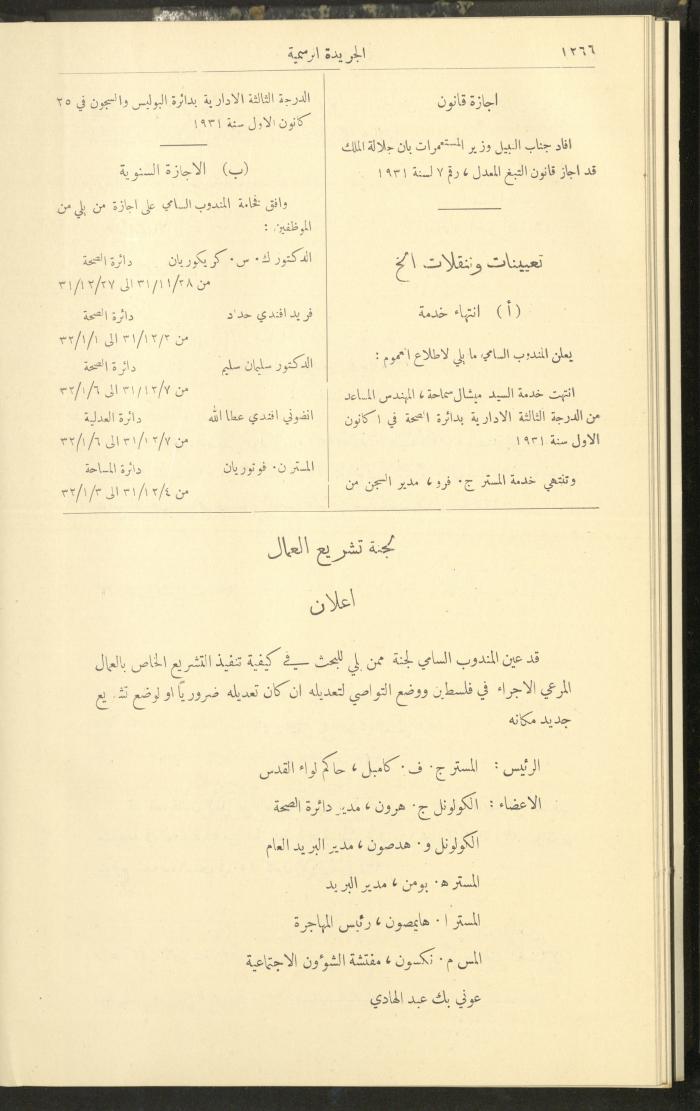 ١٢٦٦
الجريدة الرسمية
اجازة قانون
افاد جناب النبيل وزير المستعمرات بان جلالة الملك
قد اجاز قانون التبغ المعدل ، رقم ٧ لسنة ١٩٣١
تعيينات وتنقلات الخ
(أ) انتهاء خدمة
يعلن المندوب السامي ما يلي لاطلاع العموم :
انتهت خدمة السيد ميشال سماحة ، المهندس المساعد
من الدرجة الثالثة الادارية بدائرة الصحة في ١ كانون
الاول سنة ١٩٣١
وتنتهي خدمة المستر ج. فرو ، مدير السجن من
الدرجة الثالثة الادارية بدائرة البوليس والسجون في ٢٥
كانون الاول سنة ١٩٣١
(ب) الاجازة السنوية
وافق فخامة المندوب السامي على اجازة من يلي من
الموظفين :
الدكتور ك. س. كريكوريان دائرة الصحة
من ٣١/١١/٢٨ الى ٣١/١٢/٢٧
فريد افندي حداد دائرة الصحة
من ٣١/١٢/٢ الى ٣٢/١/١
الدكتور سليمان سليم دائرة الصحة
من ٣١/١٢/٧ الى ٣٢/١/٦
انضوني افندي عطا الله دائرة العدلية
من ٣١/١٢/٧ الى ٣٢/١/٦
المستر ن. فوتوريان دائرة المساحة
من ٣١/١٢/٤ الى ٣٢/١/٣
لجنة تشريع العمال
اعلان
قد عين المندوب السامي لجنة ممن يلي للبحث في كيفية تنفيذ التشريع الخاص بالعمال
المرعي الاجراء في فلسطين ووضع التواصي لتعديله ان كان تعديله ضروريًا او لوضع تشريع
جديد مكانه
الرئيس : المستر ج. ف. كامبل ، حاكم لواء القدس
الاعضاء : الكولونل ج. هرون ، مدير دائرة الصحة
الكولونل و. هدصون ، مدير البريد العام
المستر ه. بومن ، مدير البريد
المستر ا. هايمصون ، رئيس المهاجرة
المس م. نكسون ، مفتشة الشؤون الاجتماعية
عوني بك عبد الهادي